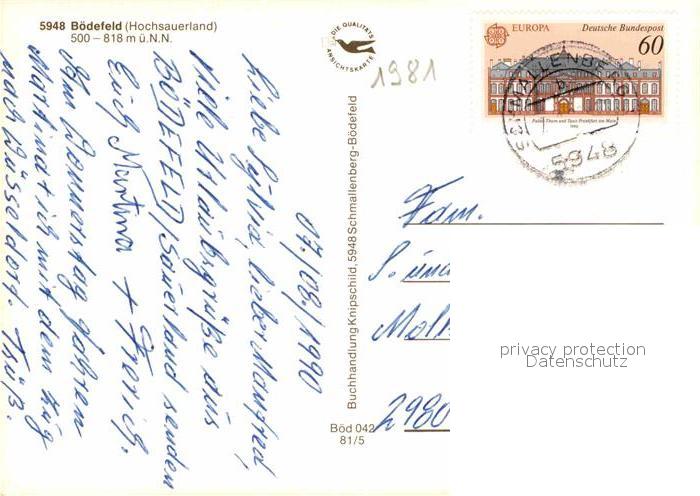 5948 Bödefeld (Hochsauerland)
500 – 818 m ü.N.N.
DIE QUALITÄTS
ANSICHTSKARTE
1981
EUROPA Deutsche Bundespost
60
Palais Thurn und Taxis Frankfurt am Main
1990
SCHMALLENBERG
b
5948
07/08/1990
Liebe Sylvia, lieber Manfred,
viele Urlaubsgrüße aus
BÖDEFELD/Sauerland senden
Euch Martina +
Am Donnerstag fahren
Martina + ich mit dem Zug
nach Düsseldorf. Tschüß.
Buchhandlung Knipschild, 5948 Schmallenberg-Bödefeld
Böd 042
81/5
Fam.
S. und
Molk
2980
privacy protection
Datenschutz